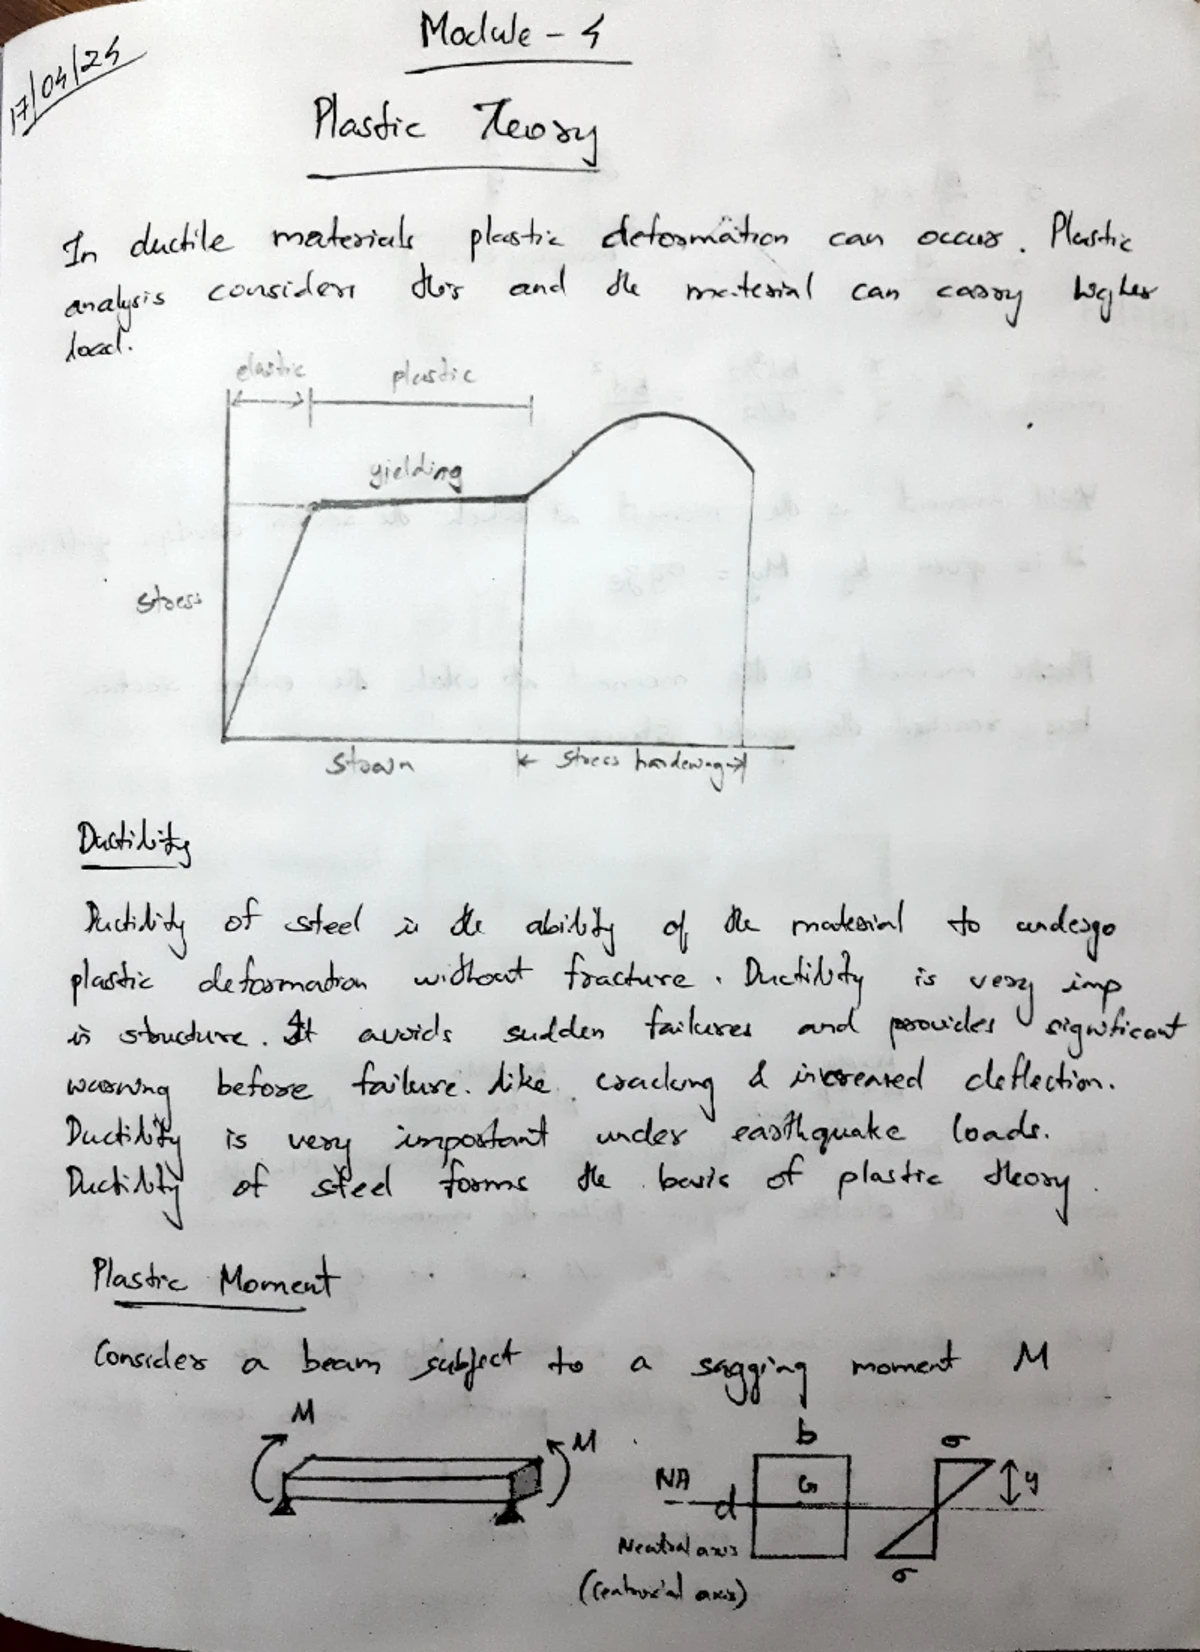 Module - 5
17/04/25
Plastic Teory
In ductile materials plastic deformation can occur. Plastic
analysis considers this and the material can carry higher
load.
elastic
plastic
yielding
stress
strain
stress hardening
Ductility
Ductility of steel is the ability of the material to undergo
plastic deformation without fracture. Ductility is very imp
in structure. It avoids sudden failures and provides significant
warning before failure. like cracking & increased deflection.
Ductility is very important under earthquake loads.
Ductility of steel forms the basis of plastic theory.
Plastic Moment
Consider a beam subject to a sagging moment M
M
M
b
σ
NA
G
y
d
Neutral axis
σ
(Centroidal axis)